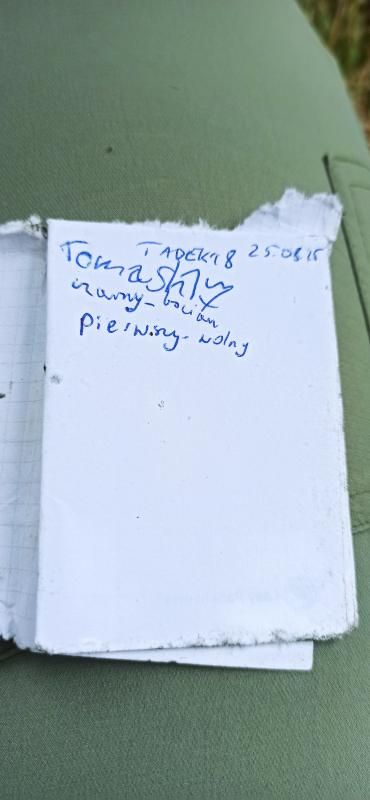 TADEK18 25.08.15
Tomashly
czarny-bocian
pierwszy-wolny